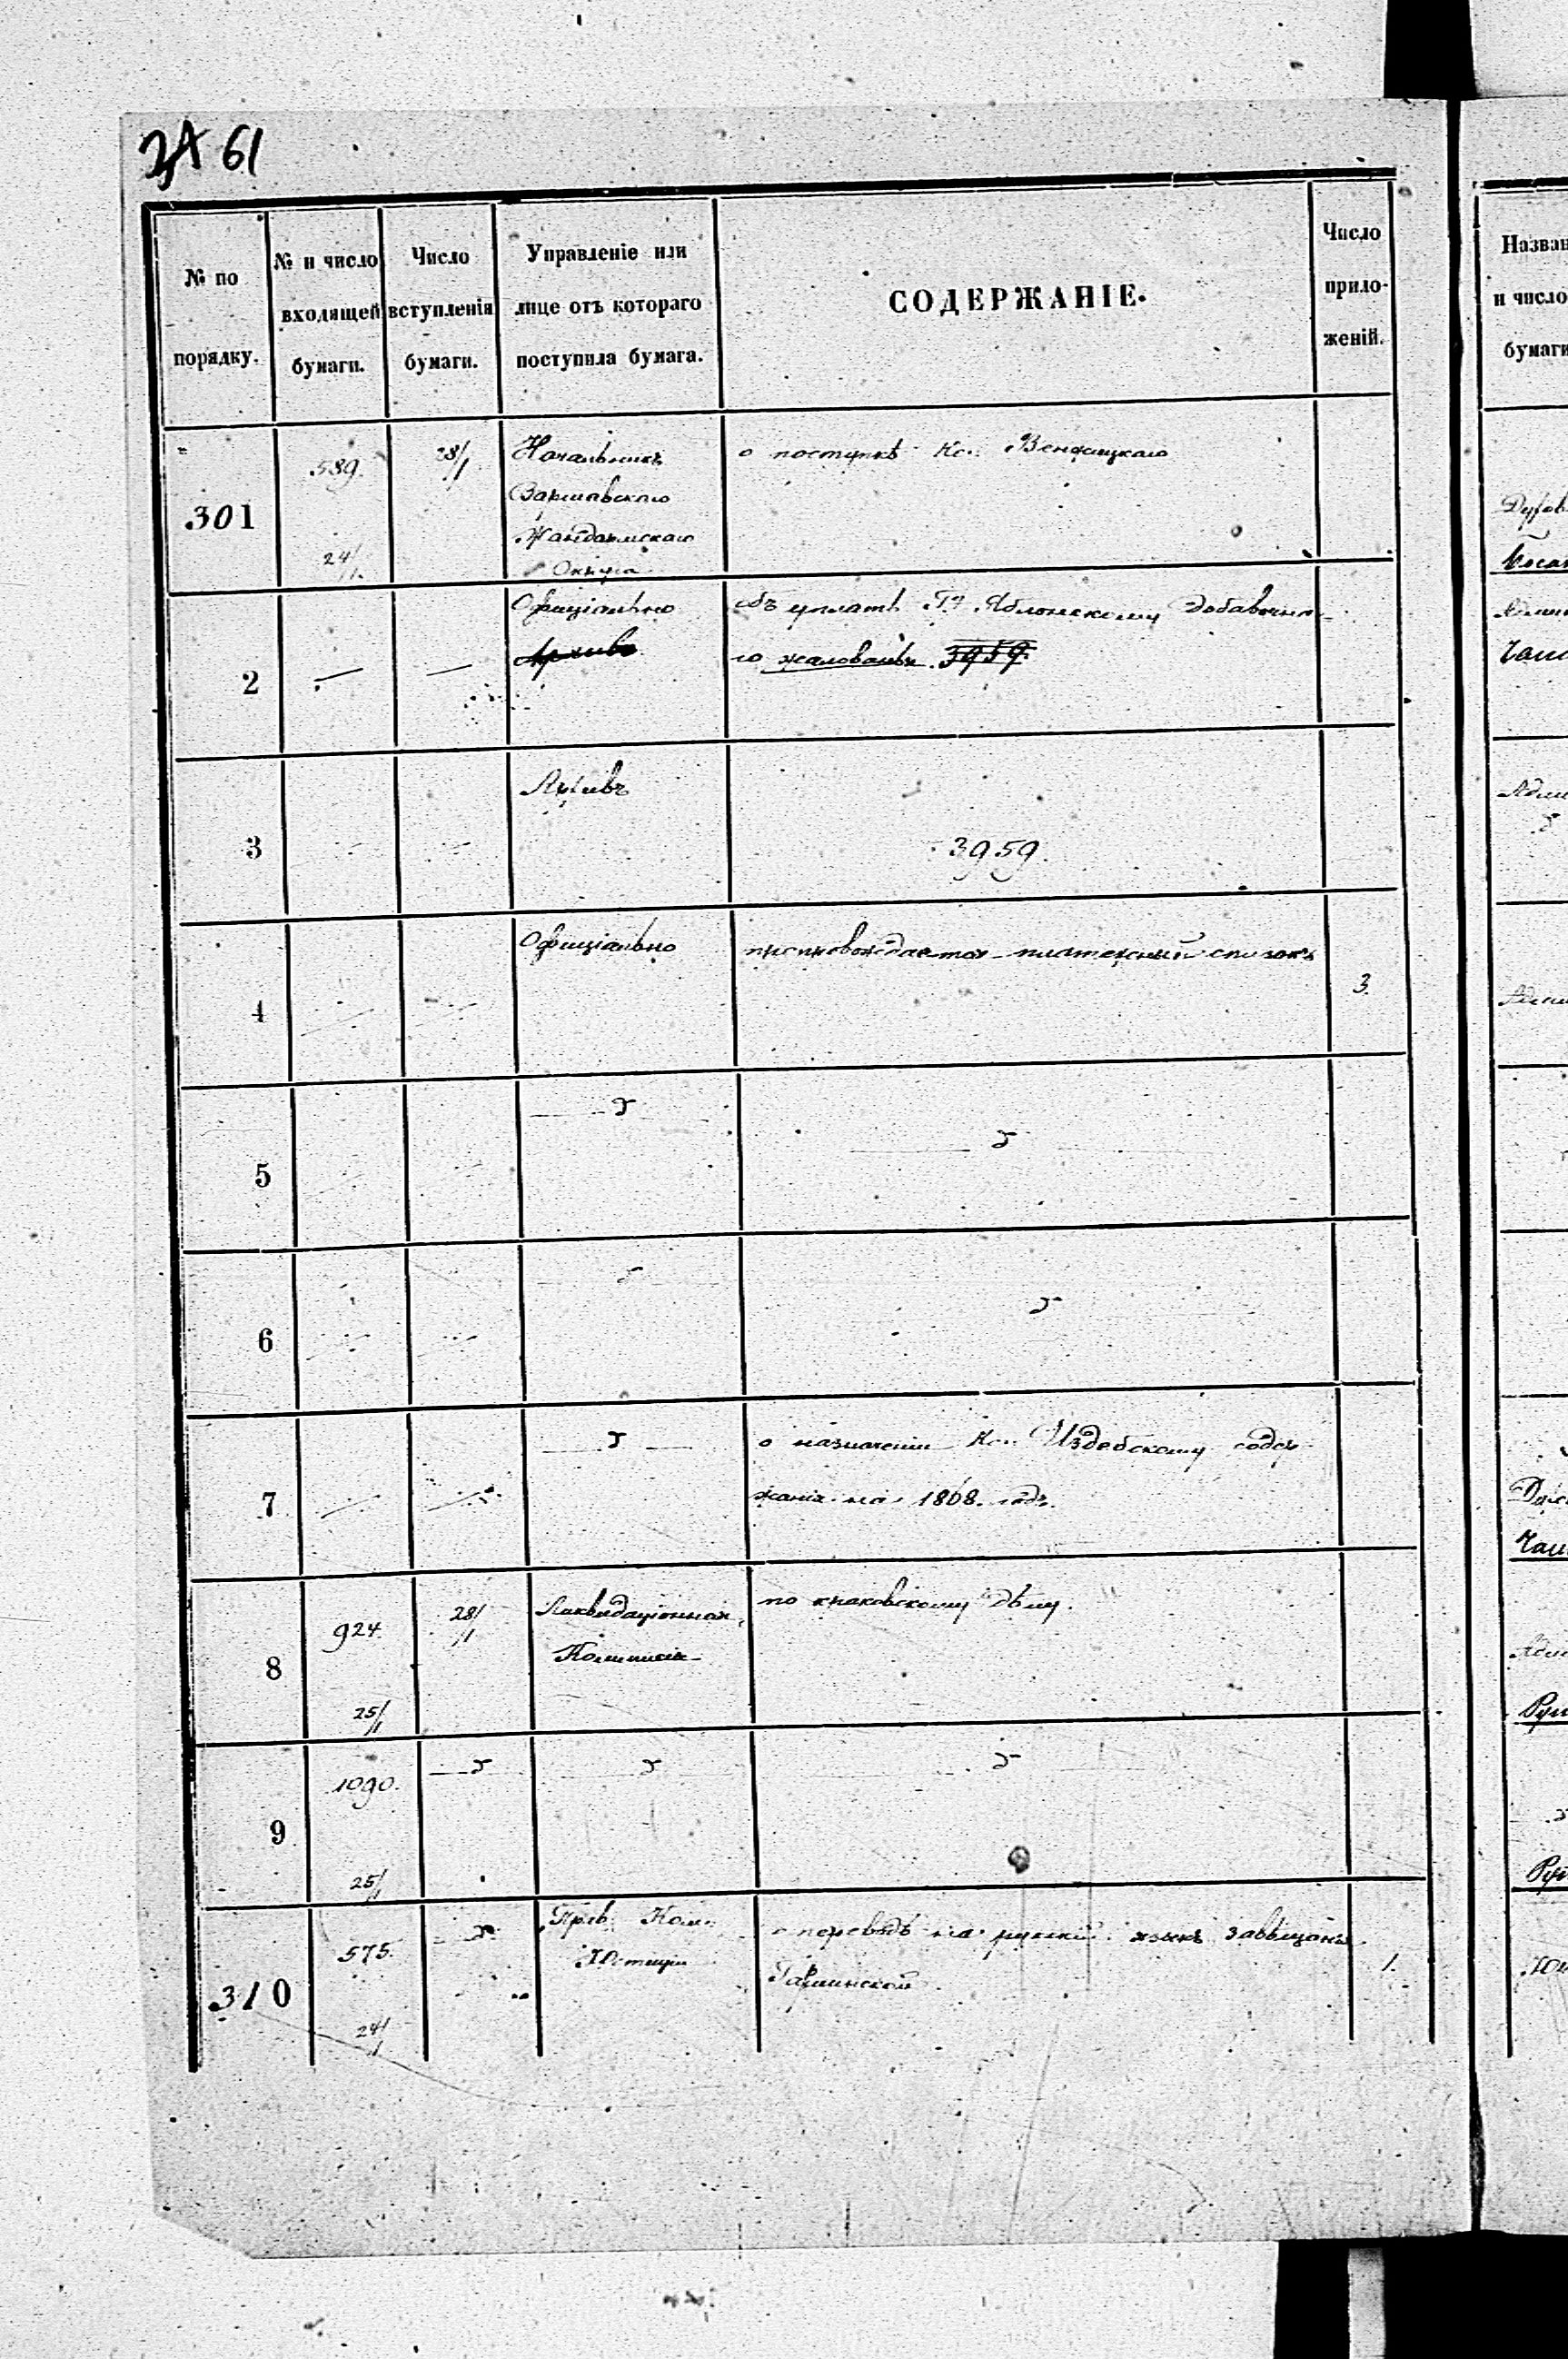 61
№ по порядку.
№ и число входящей бумаги.
Число вступленія бумаги.
Управленіе или лице отъ котораго поступила бумага.
СОДЕРЖАНІЕ.
Число приложеній.
301
589.
24/1.
28/1
Начальникъ
Варшавскаго
Жандармскаго
Округа
о поступкѣ Кс.
2
—
—
Офиціально
Архивъ
объ уплатѣ Гу Яблонскому добавочна-
го жалованья 3959.
3
Архивъ
3959.
4
Офиціально
препровождается платежный списокъ
3.
5
6
7
о назначеніи Кс. Издебскому содер-
жанія на 1868. годъ.
8
924.
25/1
28/1
Ликвидаціонная
Коммисія
по краковскому дѣлу.
9
1090.
25/1
310
575.
24/1
Прав. Ком.
Юстиціи
о переводѣ на русскій языкъ завѣщанія
1.
Назван
и число
бумаги